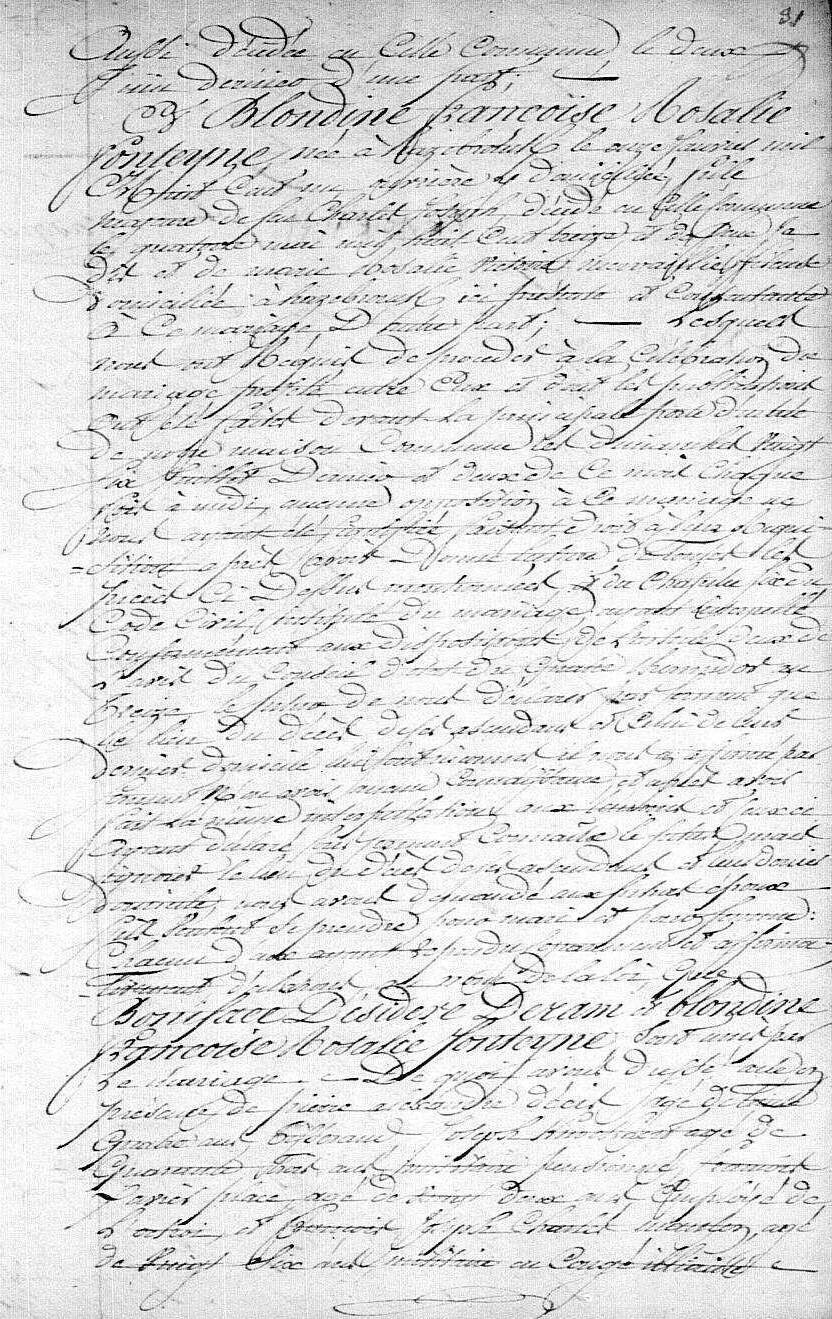 31
aussi décédée en cette Commune le deux
Juin dernier d'une part;
Et Blondine francoise Rosalie
fonteyne, née à hazebrouck le onze fevrier mil
huit Cent un, ouvrière y domiciliée, fille
majeure de feu Charles Joseph, décédé en cette Commune
le quatorze mai mil huit Cent treize et de
et de marie Rosalie
domiciliée à hazebrouck ici présente et Consentante
à Ce mariage D'autre part; Lesquels
nous ont Requis de procéder à la Célébration du
mariage projetté entre Eux et dont les publications
ont été faites devant la principale porte d'entrée
de notre maison Commune les dimanches Vingt
six Juillet Dernier et deux de Ce mois Chaque
fois à midi, aucune opposition à Ce mariage ne
nous ayant été faisant droit à leur Requi-
-sition après avoir Donné lecture de toutes les
pieces Ci Dessus mentionnées et du Chapitre six du
Code Civil intitulé du mariage, ayant interpellé
Conformément aux dispositions de L'article deux de
L'avis du Conseil d'état du quatre thermidor an
treize le futur de nous déclarer par serment que
le lieu du décès de ses ascendans et Celui de leur
dernier domicile lui sont inconnus il nous a affirmé par
serment N'en avoir aucune Connaissance, et après avoir
fait la même interpellation aux temoins et Ceux ci
ayant déclaré par serment Connaître le futur mais
ignorer le lieu du décès de ses ascendans et leur dernier
domicile, nous avons demandé aux futurs époux
s'ils veulent se prendre pour mari et pour femme:
Chacun d'eux ayant répondu séparement et affirma-
-tivement déclarons au nom de la loi, Que
Boniface Désidere Deram et blondine
francoise Rosalie fonteyne sont unis par
Le mariage. De quoi avons dressé acte en
présence de pierre alexandre âgé de
quatre ans, Joseph âgé de
quarante trois ans militaire pensionné, francois
Xavier place, agé de trente deux ans Employé de
L'octroi, et francois Joseph Charles agé
de Vingt Six ans militaire en Congé illimité